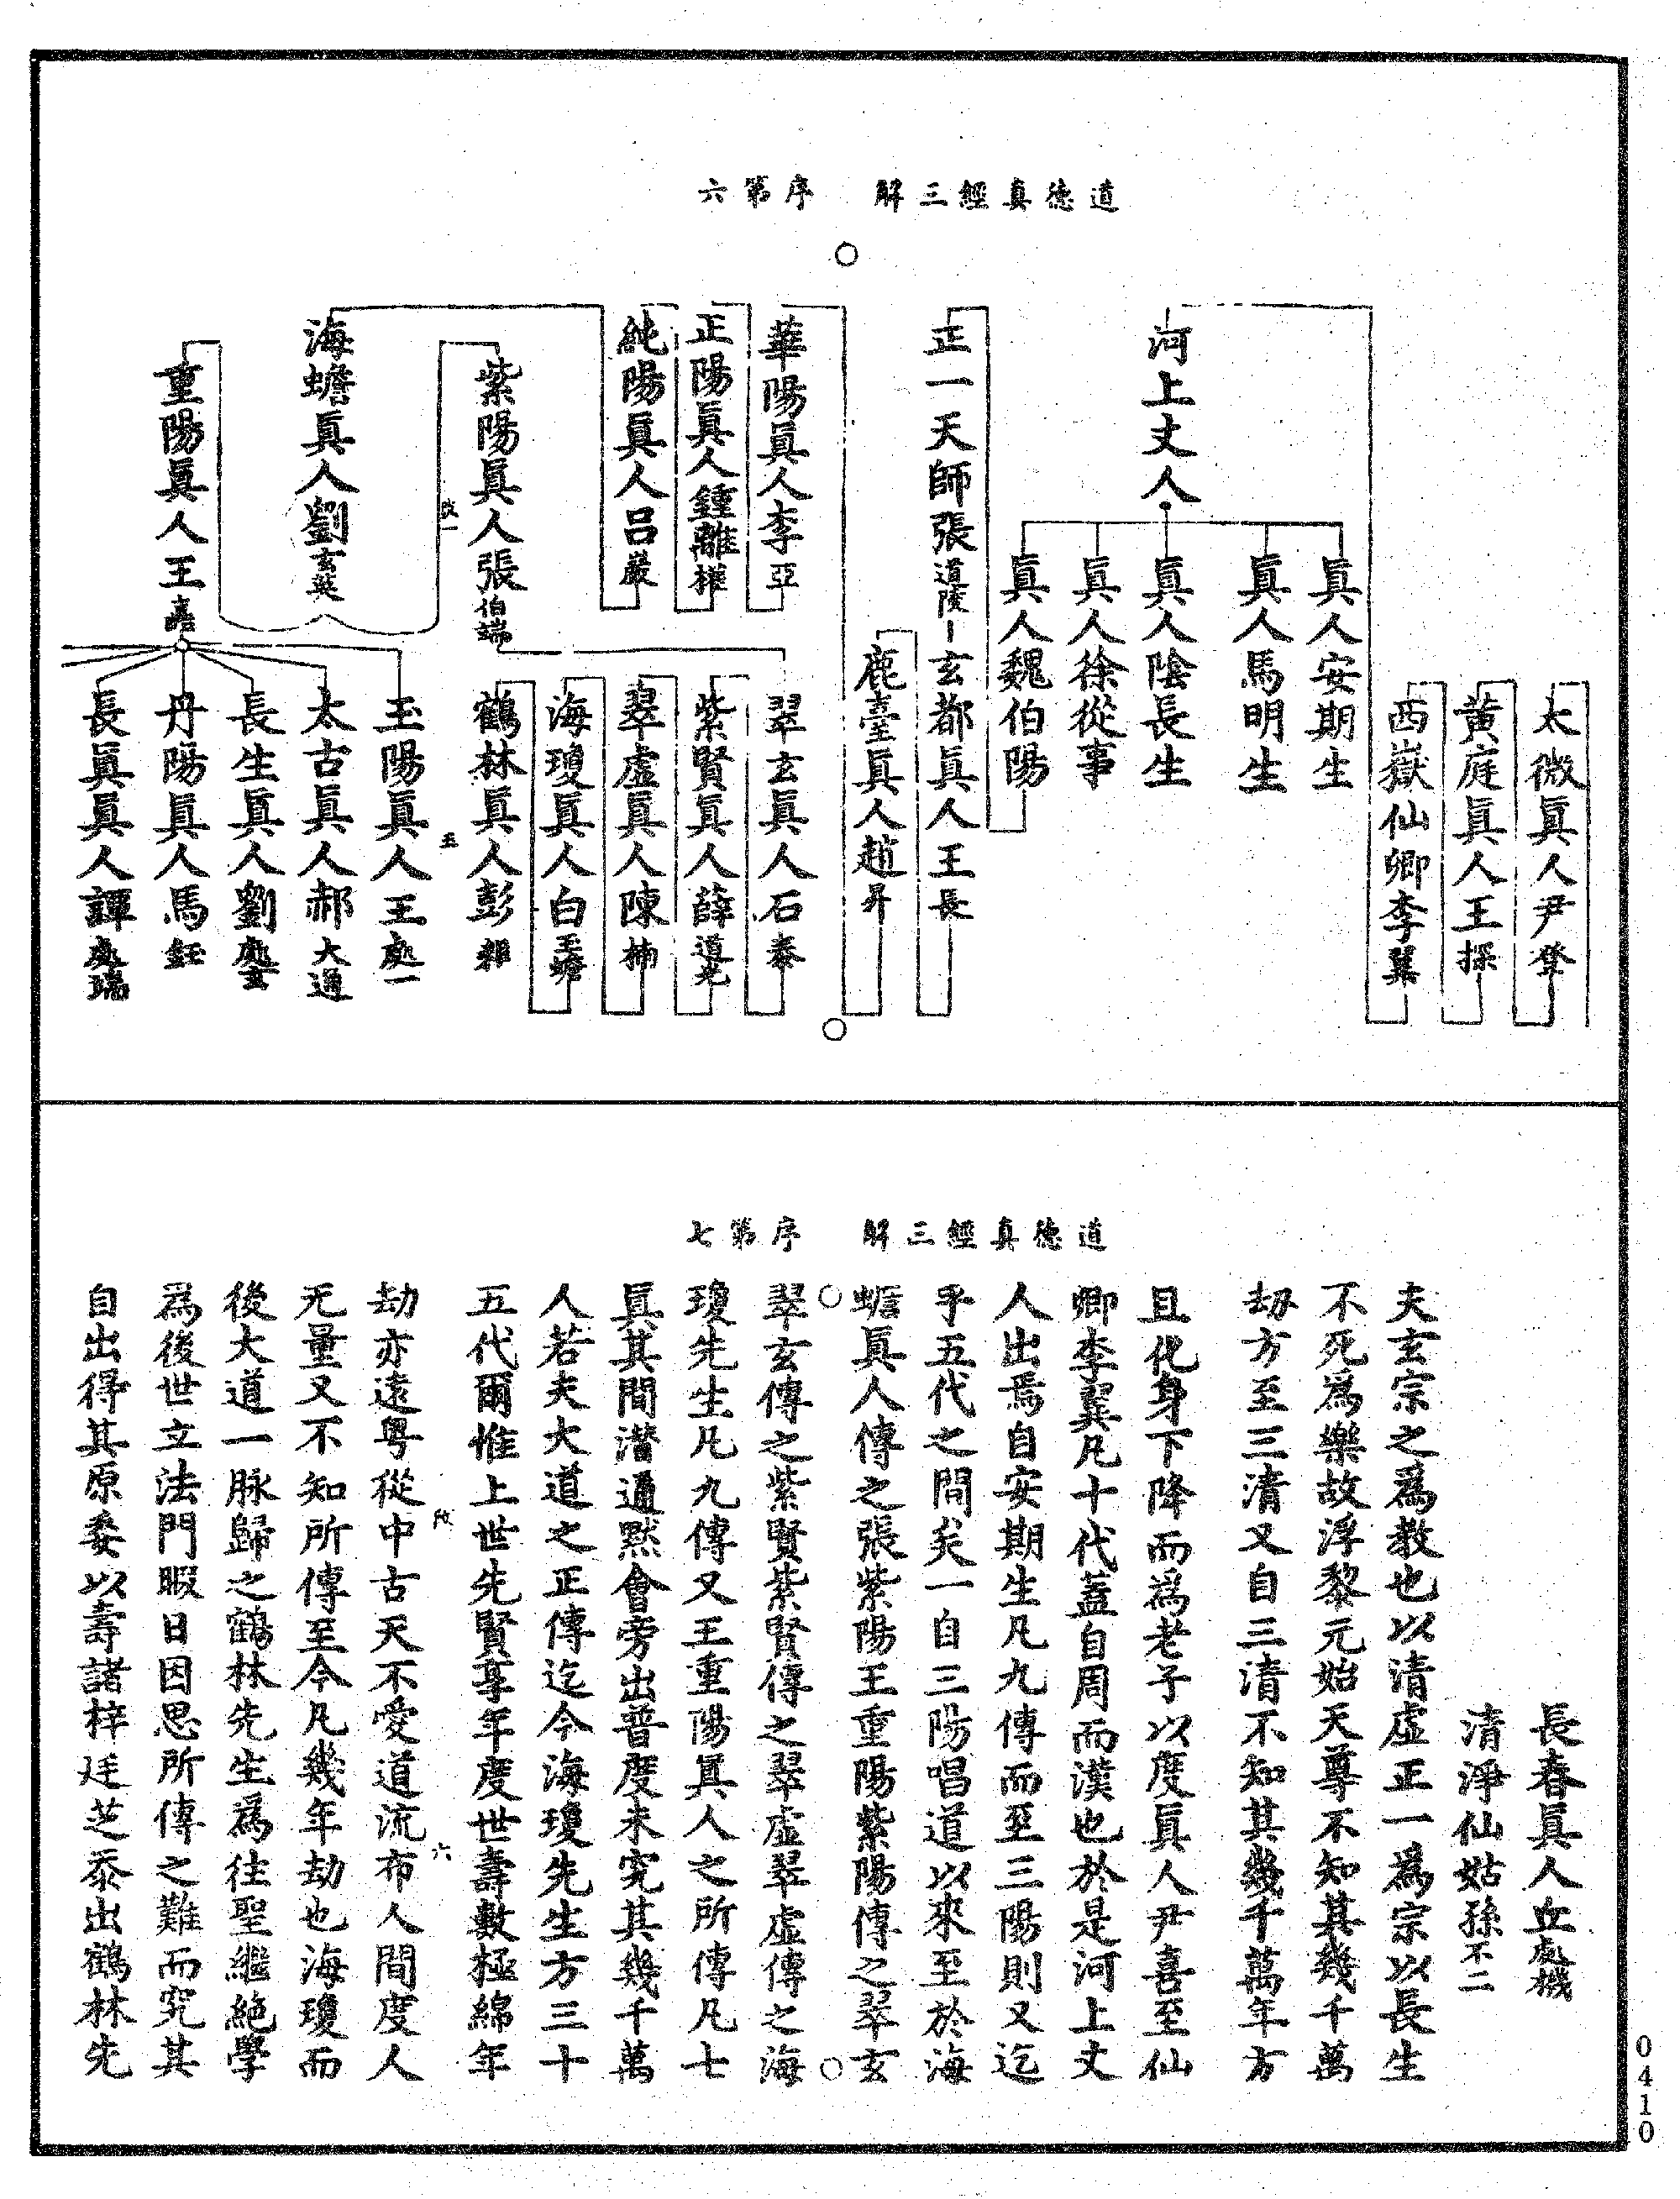 道德真經三解　序第六
太微真人尹𮜿
黃庭真人王探
西嶽仙卿李翼
河上丈人
真人安期生
真人馬明生
真人陰長生
真人徐從事
真人魏伯陽
正一天師張道陵
玄都真人王長
鹿臺真人趙昇
華陽真人李亞
正陽真人鍾離權
純陽真人呂巖
海蟾真人劉玄英
紫陽真人張伯端
翠玄真人石泰
紫賢真人薛道光
翠虛真人陳楠
海瓊真人白玉蟾
鶴林真人彭耜
改一
五
重陽真人王嚞
玉陽真人王處一
太古真人郝大通
長生真人劉處玄
丹陽真人馬鈺
長真真人譚處端
道德真經三解　序第七
長春真人丘處機
清淨仙姑孫不二
夫玄宗之為教也以清虛正一為宗以長生
不死為樂故浮黎元始天尊不知其幾千萬
劫方至三清又自三清不知其幾千萬年方
且化身下降而為老子以度真人尹喜至仙
卿李翼凡十代蓋自周而漢也於是河上丈
人出焉自安期生凡九傳而至三陽則又迄
乎五代之間矣一自三陽唱道以來至於海
蟾真人傳之張紫陽王重陽紫陽傳之翠玄
翠玄傳之紫賢紫賢傳之翠虛翠虛傳之海
瓊先生凡九傳又王重陽真人之所傳凡七
真其間潛通默會旁出普度未究其幾千萬
人若夫大道之正傳迄今海瓊先生方三十
五代爾惟上世先賢享年度世壽數極綿年
劫亦遠粵從中古天不愛道流布人間度人
无量又不知所傳至今凡幾年劫也海瓊而
後大道一脉歸之鶴林先生為往聖繼絕學
為後世立法門暇日因思所傳之難而究其
自出得其原委以壽諸梓廷芝忝出鶴林先
改
六
0410